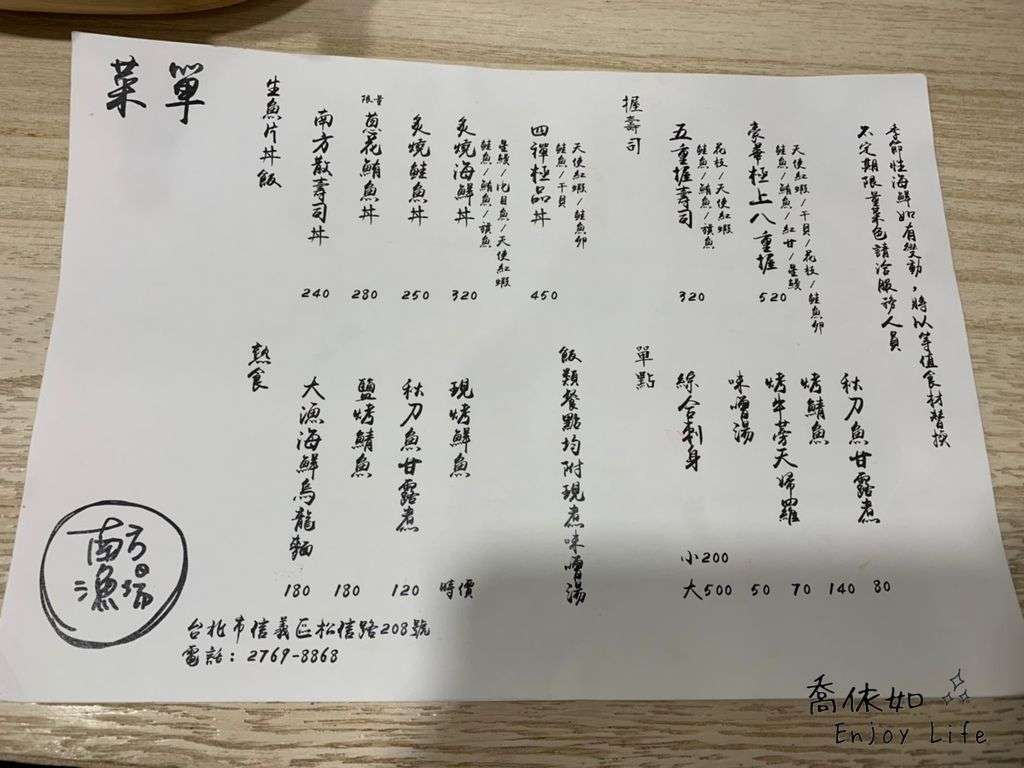 菜單
生魚片丼飯
南方散壽司丼
240
限量
蔥花鮪魚丼
280
炙燒鮭魚丼
250
炙燒海鮮丼
星鰻/比目魚/天使紅蝦
鮭魚/鮪魚/旗魚
320
四禪極品丼
天使紅蝦/鮭魚卵
鮭魚/干貝
450
握壽司
五重握壽司
花枝/天使紅蝦
鮭魚/鮪魚/旗魚
320
豪華極上八重握
天使紅蝦/干貝/花枝/鮭魚卵
鮭魚/鮪魚/紅甘/星鰻
520
季節性海鮮如有變動,將以等值食材替換
不定期限量菜色請洽服務人員
熱食
大漁海鮮烏龍麵
180
鹽烤鯖魚
180
秋刀魚甘露煮
120
現烤鮮魚
時價
飯類餐點均附現煮味噌湯
單點
綜合刺身
小200
大500
味噌湯
50
烤牛蒡天婦羅
70
烤鯖魚
140
秋刀魚甘露煮
80
南方
漁場
台北市信義區松信路208號
電話:2769-8868
喬依如
Enjoy Life